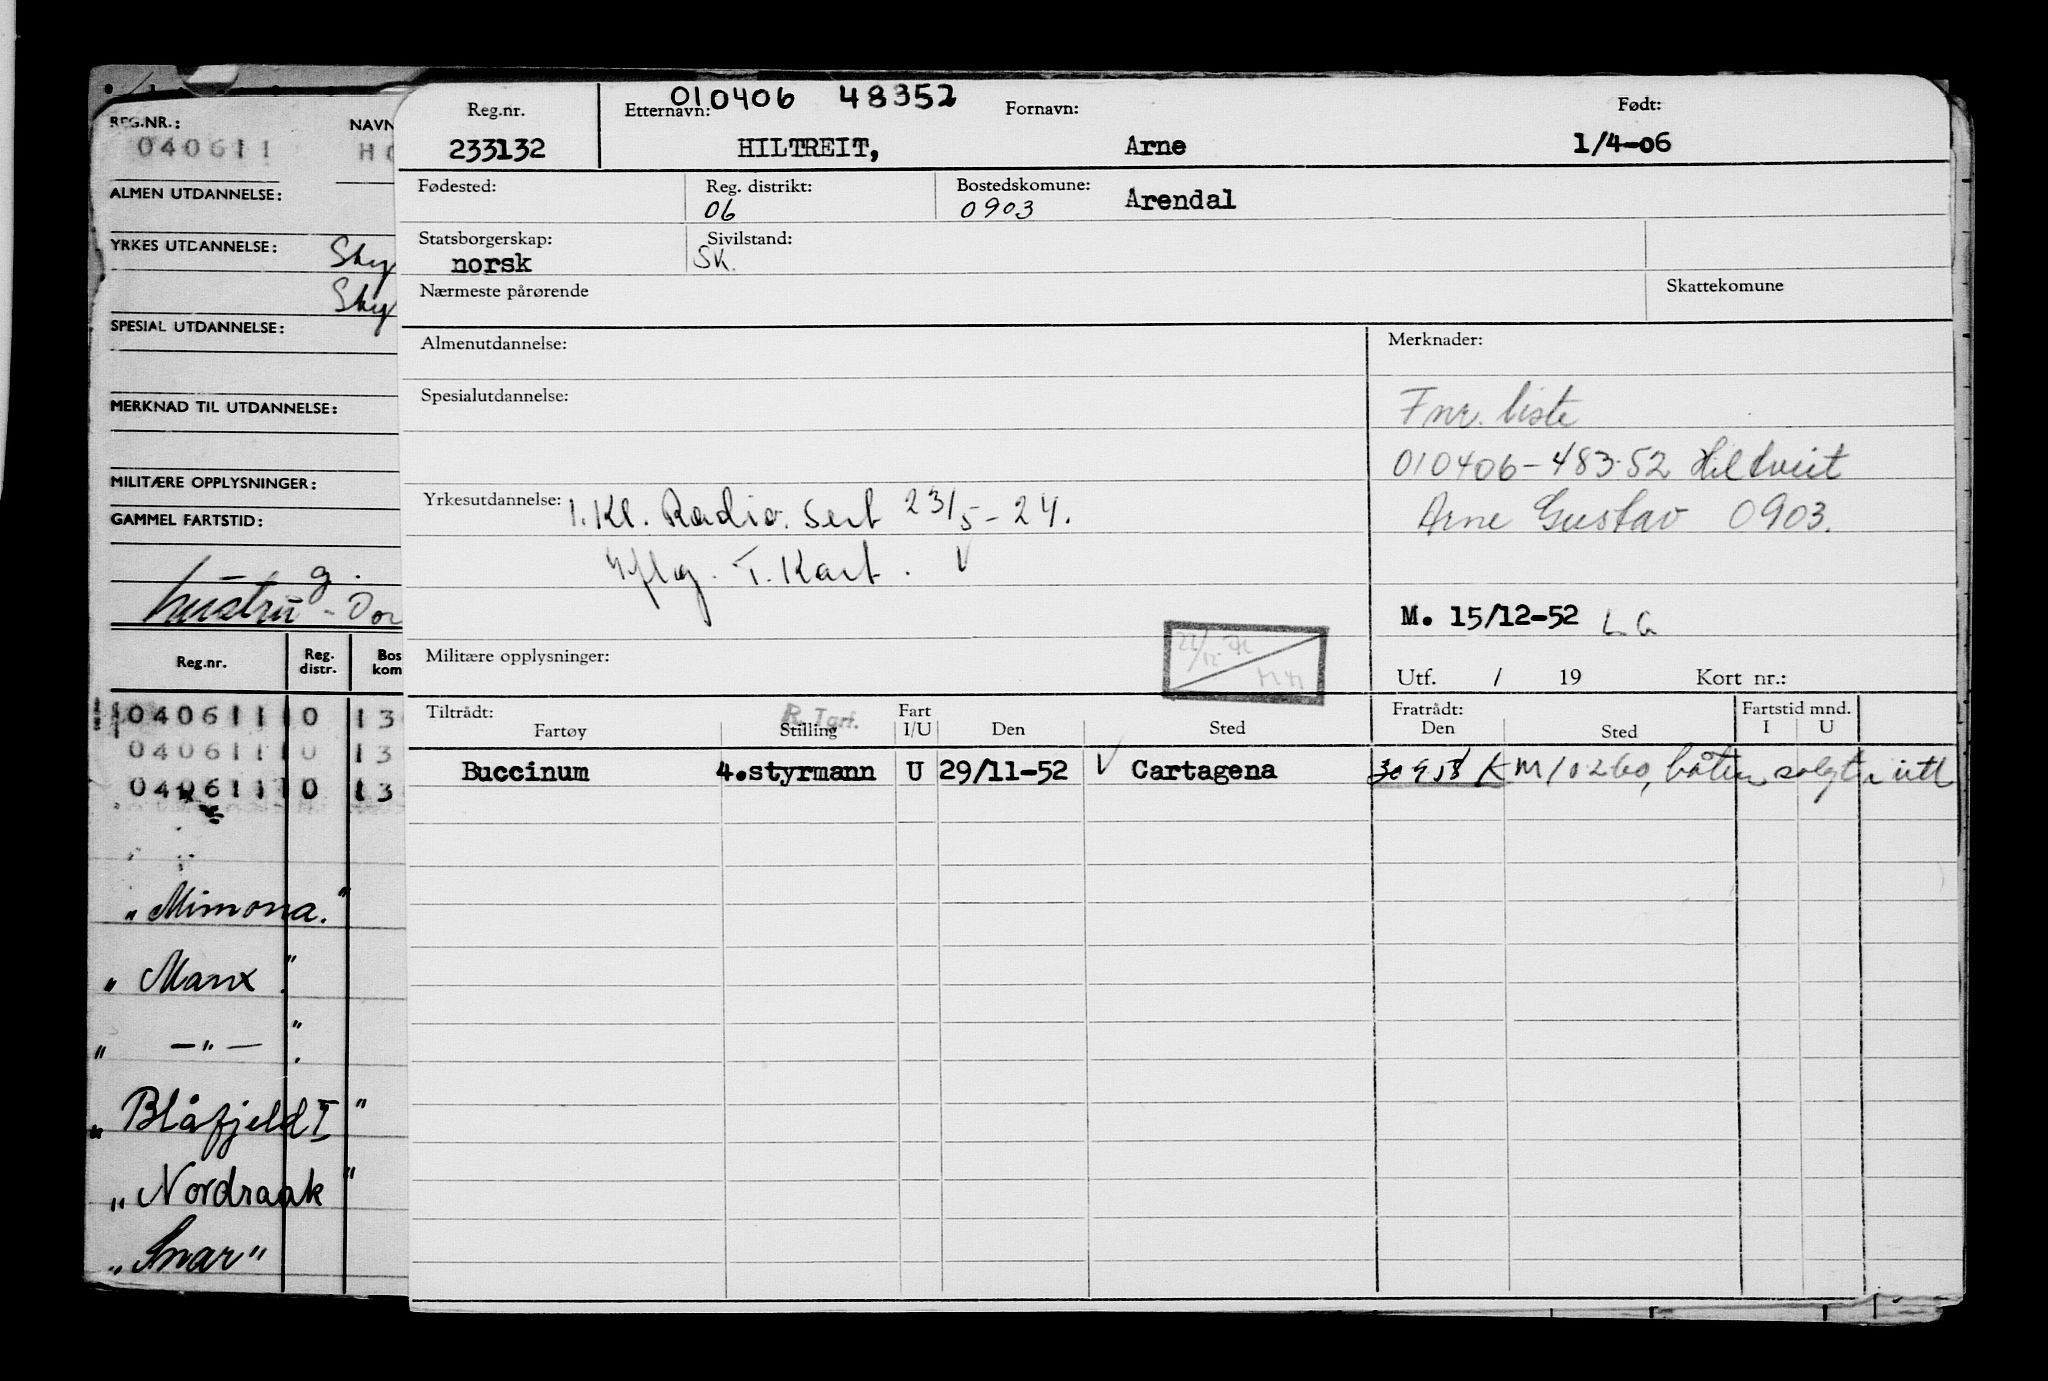 REG.NR.:
040611
NAVN
HO
ALMEN UTDANNELSE:
YRKES UTDANNELSE:
SPESIAL UTDANNELSE:
MERKNAD TIL UTDANNELSE:
MILITÆRE OPPLYSNINGER:
GAMMEL FARTSTID:
Reg.nr.
Reg. distr.
Bos kom
040611 0 13
040611 0 13
040611 0 13
"Mimona."
"Manx".
" —"— ".
"Blåfjeld I"
"Nordraak"
"Snar"
010406 48352
Reg.nr. Etternavn: Fornavn: Født:
233132 HILTREIT, Arne 1/4-06
Fødested: Reg. distrikt: Bostedskomune:
06 0903 Arendal
Statsborgerskap: Sivilstand:
norsk SK.
Nærmeste pårørende Skattekomune
Almenutdannelse: Merknader:
Spesialutdannelse:
Fnr. liste
010406-483.52 Hiltveit
Arne Gustav 0903.
Yrkesutdannelse: 1. Kl. Radio. Sert 23/5-24.
T. Kart. V
M. 15/12-52 LG
Militære opplysninger:
Utf. / 19 Kort nr.:
Tiltrådt: Fart Fratrådt: Fartstid mnd.
Fartøy Stilling I/U Den Sted Den Sted I U
Buccinum 4.styrmann U 29/11-52 V Cartagena 30 9 58 KM/0260, båten solgt